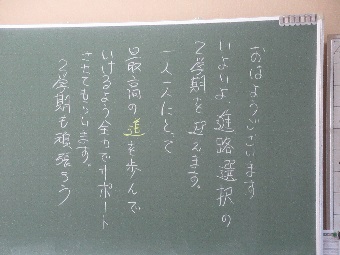 おはようございます
いよいよ進路選択の
2学期を迎えます。
一人一人にとって
最高の進を歩んで
いけるよう全力でサポート
させてもらいます。
2学期も頑張ろう